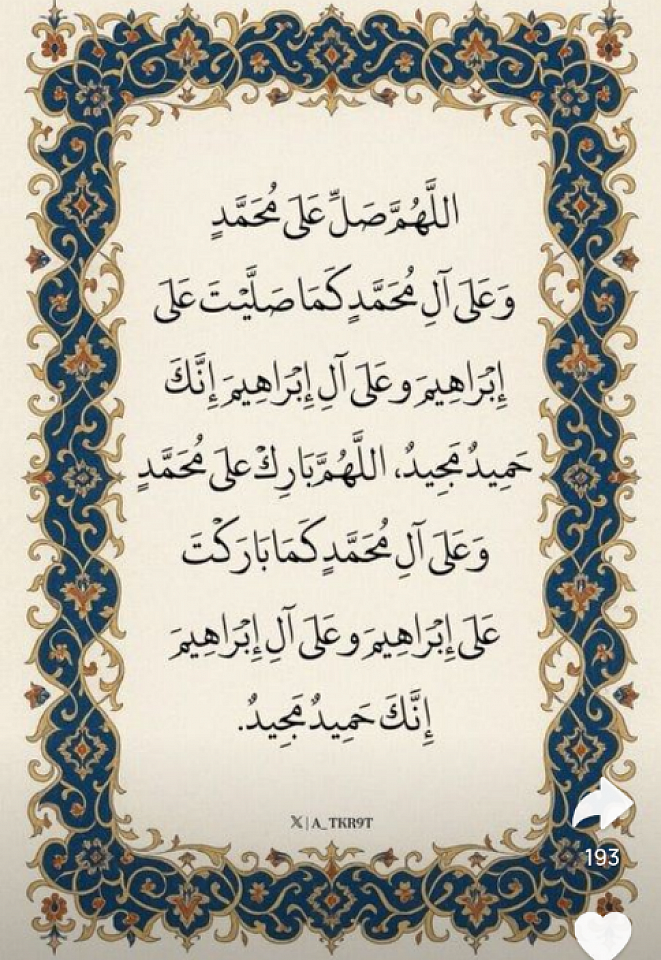 اللَّهُمَّ صَلِّ عَلَى مُحَمَّدٍ
وَعَلَى آلِ مُحَمَّدٍ كَمَا صَلَّيْتَ عَلَى
إِبْرَاهِيمَ وعَلَى آلِ إِبْرَاهِيمَ إِنَّكَ
حَمِيدٌ مَجِيدٌ، اللَّهُمَّ بَارِكْ علَى مُحَمَّدٍ
وَعَلَى آلِ مُحَمَّدٍ كَمَا بَارَكْتَ
عَلَى إِبْرَاهِيمَ وعَلَى آلِ إِبْرَاهِيمَ
إِنَّكَ حَمِيدٌ مَجِيدٌ.
𝕏 | A_TKR9T
193